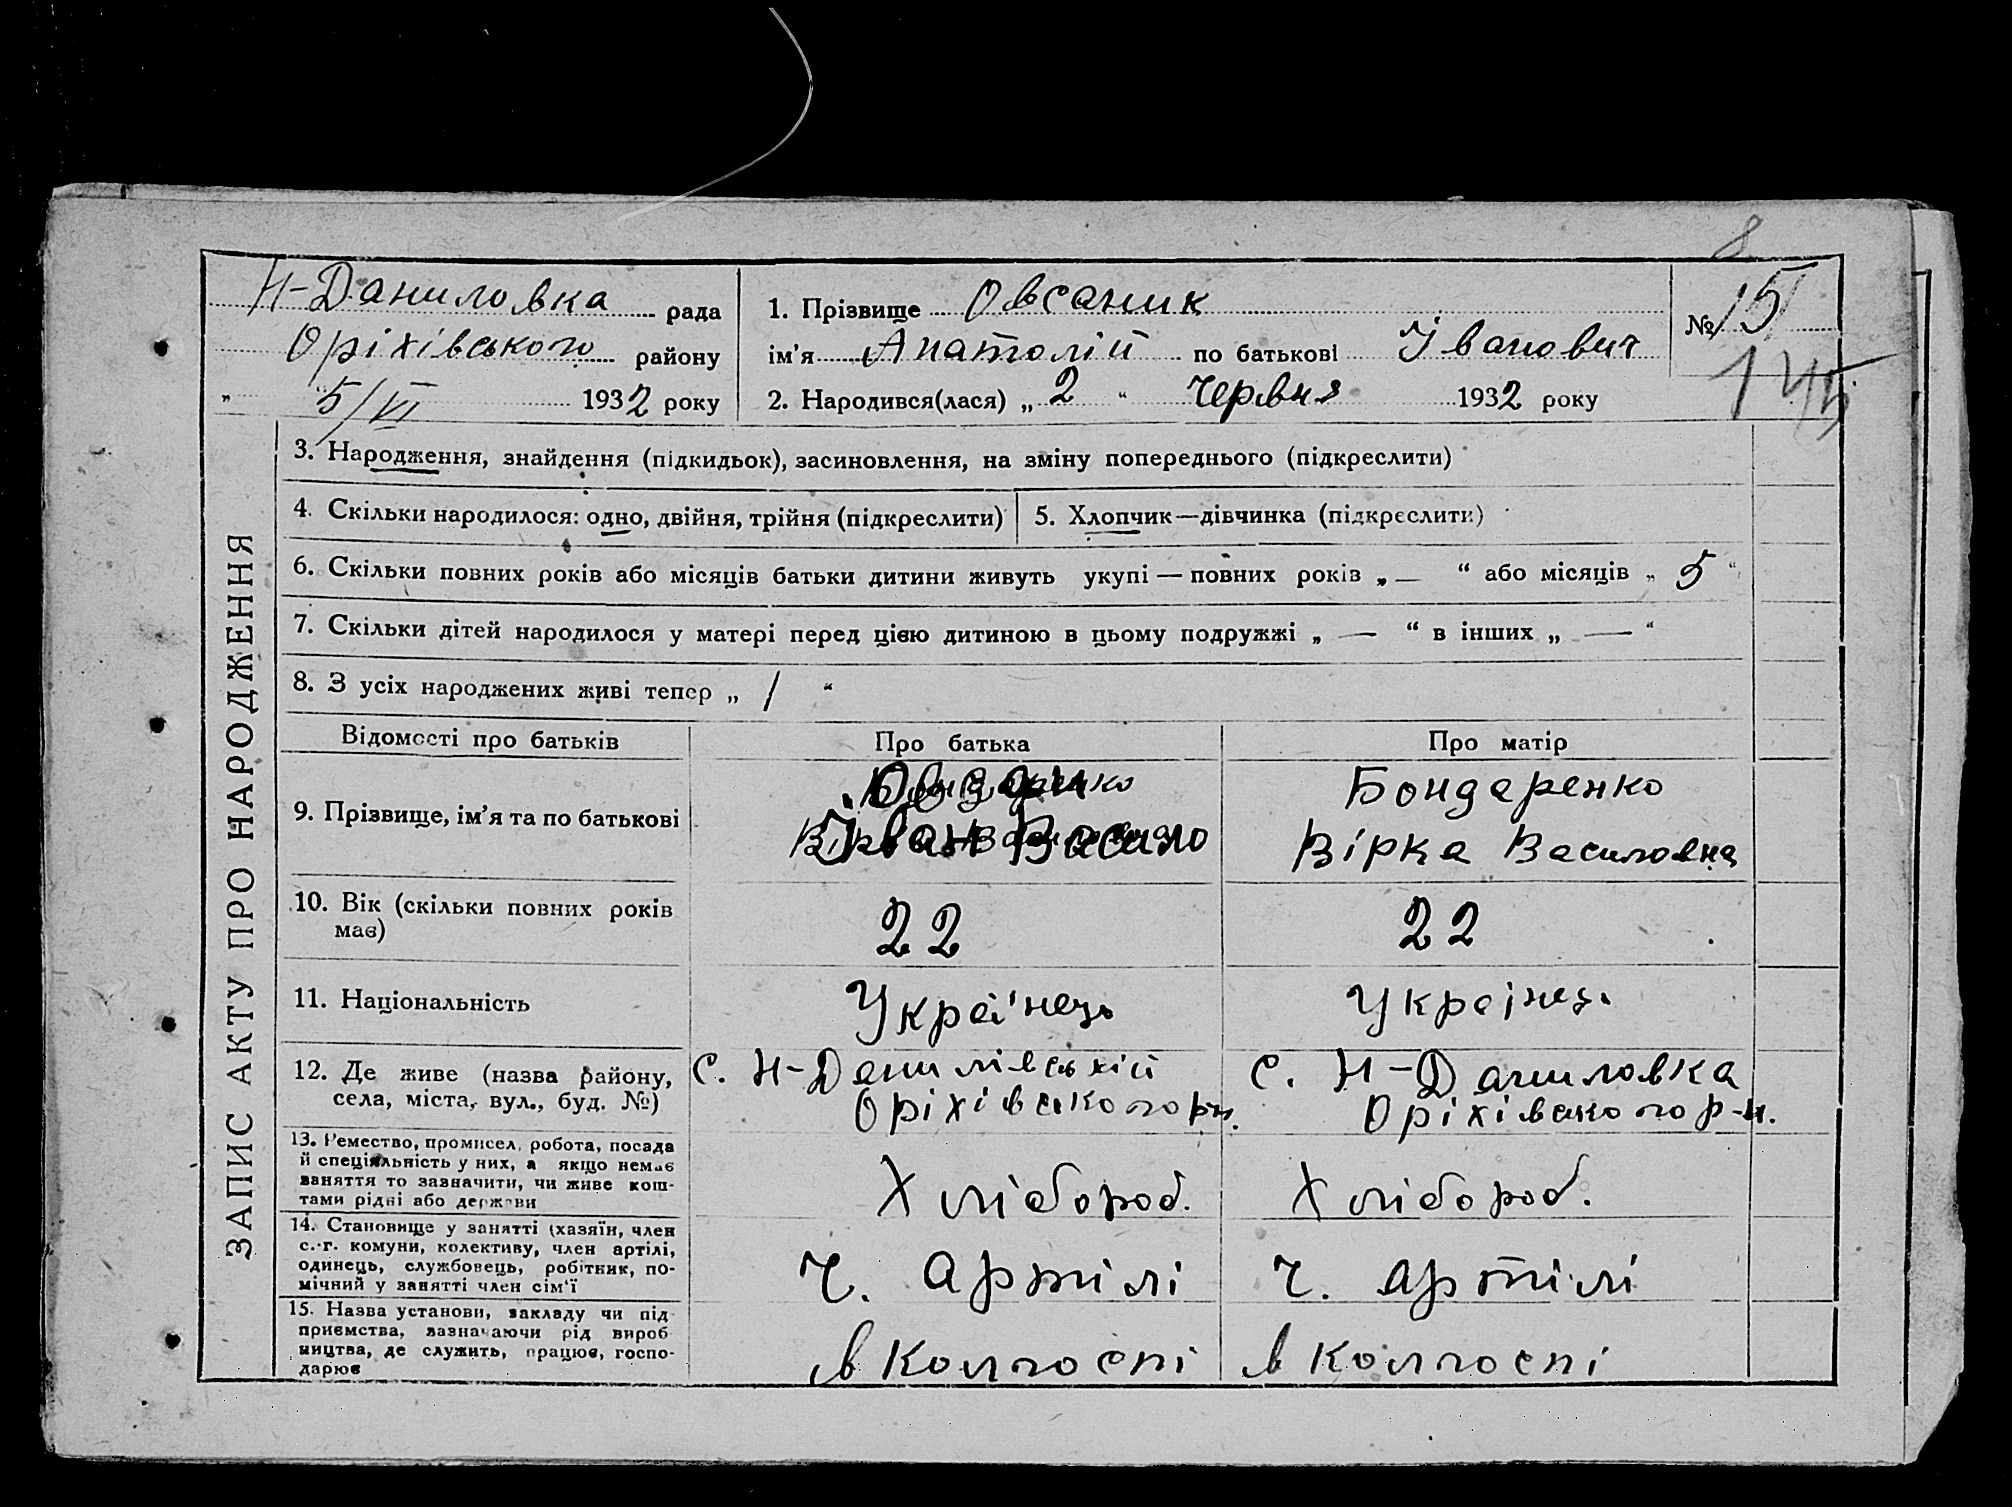 8
Н-Даниловка рада
Оріхівського району
„ 5/VI 1932 року
1. Прізвище Овсаник
ім’я Анатолій по батькові Іванович
2. Народився(лася) „ 2 “ Червня 1932 року
№ 15
145
ЗАПИС АКТУ ПРО НАРОДЖЕННЯ
3. Народження, знайдення (підкидьок), засиновлення, на зміну попереднього (підкреслити)
4. Скільки народилося: одно, двійня, трійня (підкреслити)
5. Хлопчик—дівчинка (підкреслити)
6. Скільки повних років або місяців батьки дитини живуть укупі — повних років „ — “ або місяців „ 5 “
7. Скільки дітей народилося у матері перед цією дитиною в цьому подружжі „ — “ в інших „ — “
8. З усіх народжених живі тепер „ 1 “
Відомості про батьків
Про батька
Про матір
9. Прізвище, ім’я та по батькові
Іван Васило
Бондаренко
Вірка Василовна
10. Вік (скільки повних років
має)
22
22
11. Національність
Украінець
Украінець
12. Де живе (назва району,
села, міста, вул., буд. №)
с. Н-Данилівській
Оріхівського р-н.
с. Н-Даниловка
Оріхівського р-н.
13. Ремество, промисел, робота, посада
й спеціяльність у них, а якщо немає
заняття то зазначити, чи живе кош-
тами рідні або держави
Хлібороб.
Хлібороб.
14. Становище у занятті (хазяїн, член
с.-г. комуни, колективу, член артілі,
одинець, службовець, робітник, по-
мічний у занятті член сім’ї
Ч. артілі
Ч. артілі
15. Назва установи, закладу чи під
приємства, зазначаючи рід вироб
ництва, де служить, працює, госпо-
дарює
в колгоспі
в колгоспі